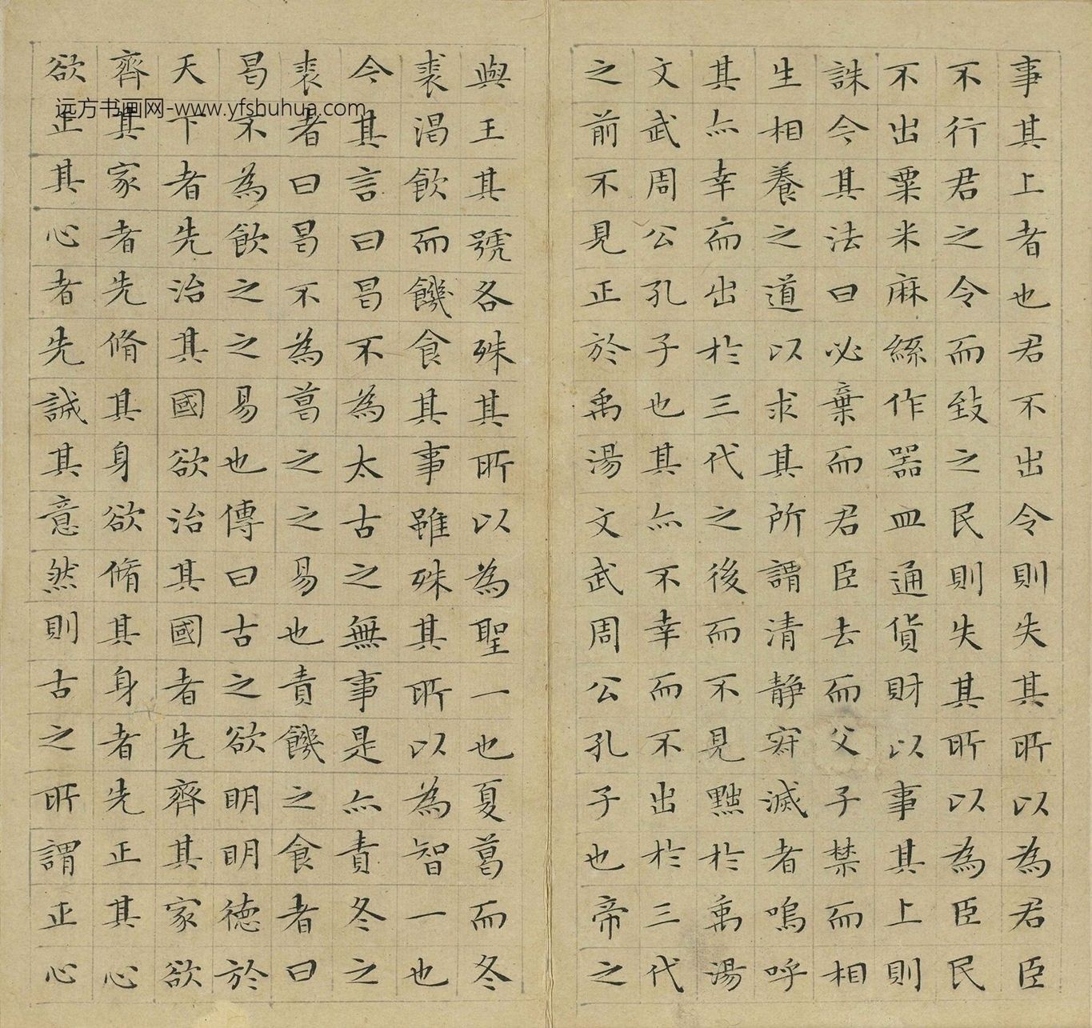 事其上者也君不出令則失其所以為君臣
不行君之令而致之民則失其所以為臣民
不出粟米麻絲作器皿通貨財以事其上則
誅今其法曰必棄而君臣去而父子禁而相
生相養之道以求其所謂清静寂滅者嗚呼
其亦幸而出於三代之後而不見黜於禹湯
文武周公孔子也其亦不幸而不出於三代
之前不見正於禹湯文武周公孔子也帝之
與王其號各殊其所以為聖一也夏葛而冬
裘渴飲而饑食其事雖殊其所以為智一也
今其言曰曷不為太古之無事是亦責冬之
裘者曰曷不為葛之之易也責饑之食者曰
曷不為飲之之易也傳曰古之欲明明德於
天下者先治其國欲治其國者先齊其家欲
齊其家者先脩其身欲脩其身者先正其心
欲正其心者先誠其意然則古之所謂正心
远方书画网-www.yfshuhua.com